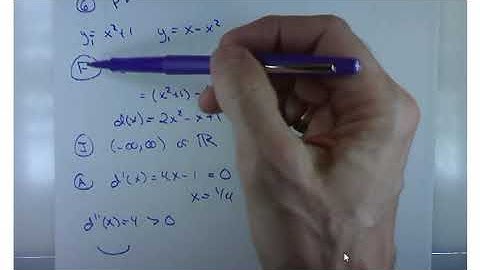 G
y₁ = x²+1 y₁ = x - x²
F
= (x²+1) -
d(x) = 2x² - x + 1
I (-∞, ∞) or ℝ
A d'(x) = 4x - 1 = 0
x = 1/4
d''(x) = 4 > 0